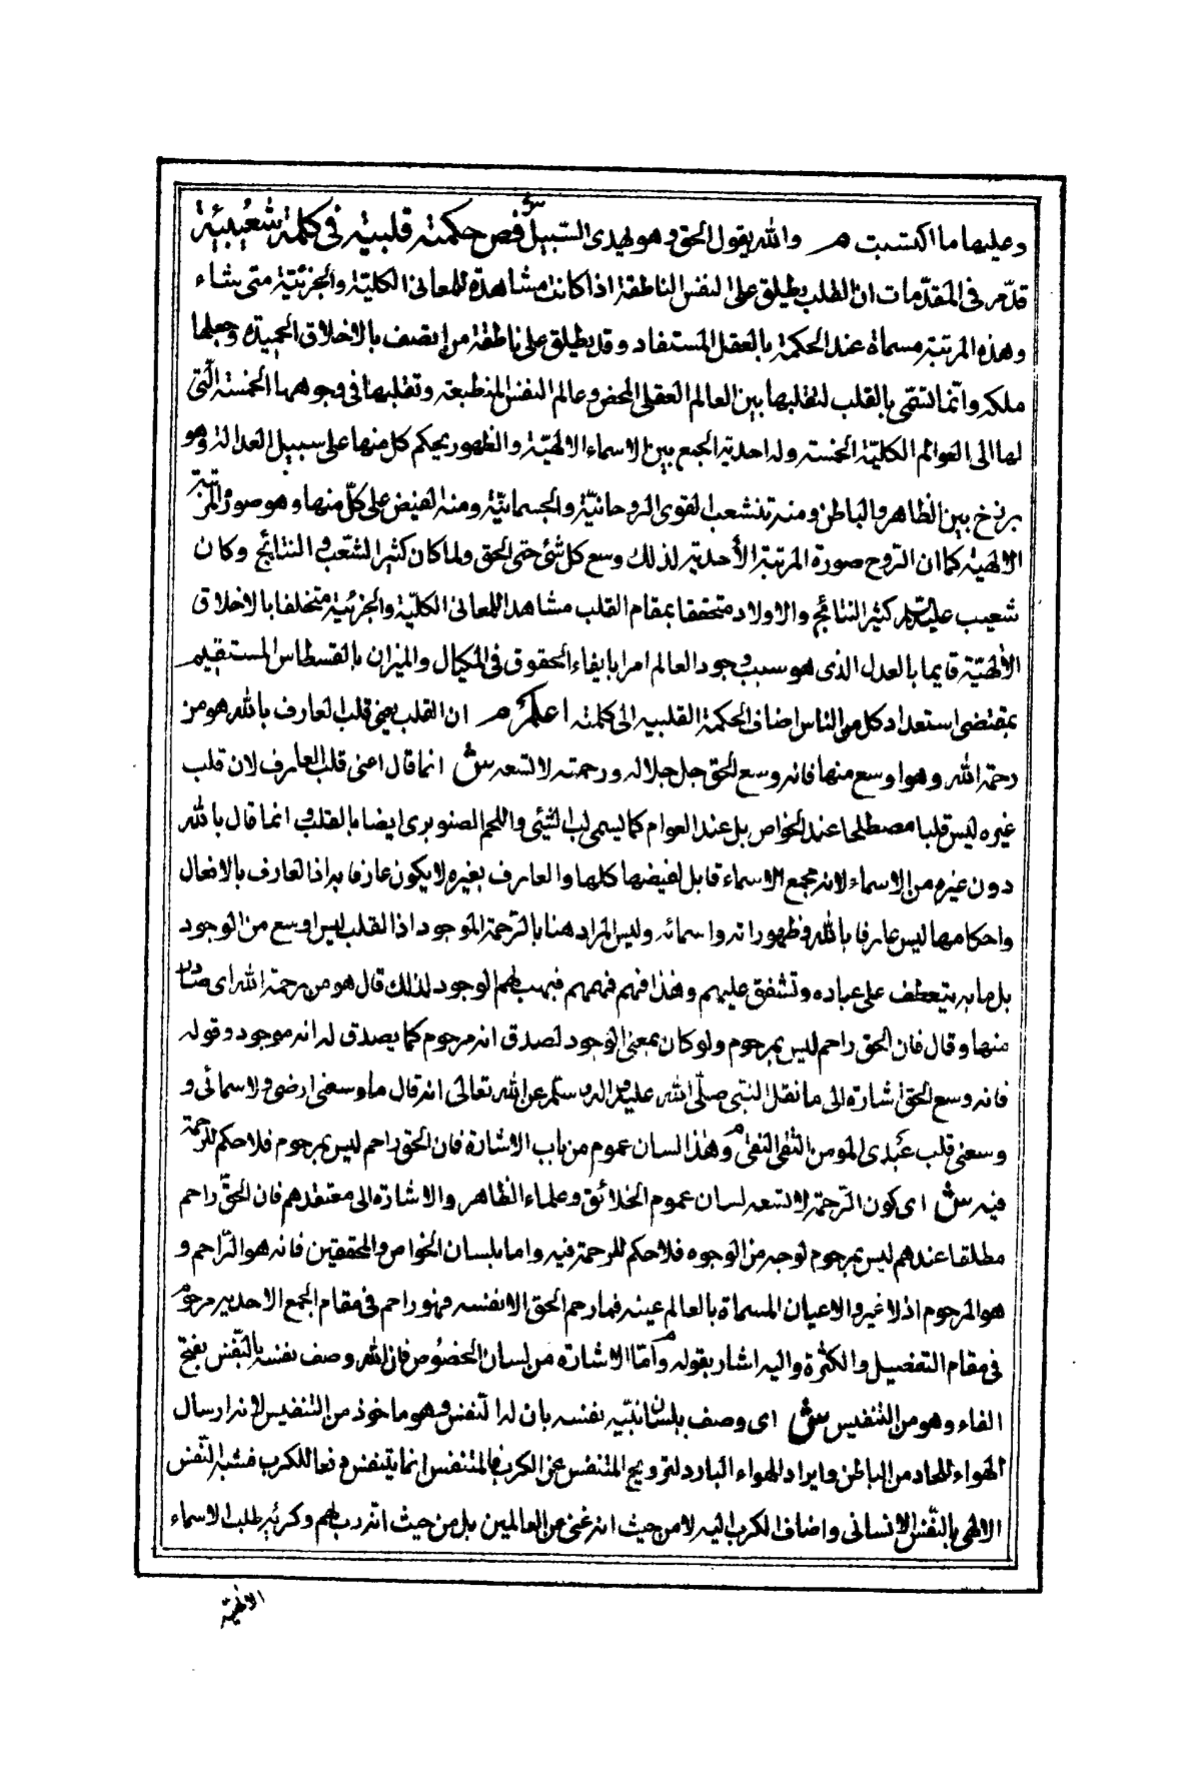 وعليها ما اكتسبت م والله يقول الحق وهو يهدى السبيل ش فص حكمة قلبية فى كلمة شعيبية
قد مر فى المقدمات ان القلب يطلق على النفس الناطقة اذا كانت مشاهدة للمعانى الكلية والجزئية متى شاء
وهذه المرتبة مسماة عند الحكمة بالعقل المستفاد وقد يطلق على ناطقة من اتصف بالاخلاق الحميدة وجعلها
ملكه وانما تسمى بالقلب لتقلبها بين العالم العقلى المحض وعالم النفس المنطبعة وتقلبها فى وجوهها الخمسة التى
لها الى العوالم الكلية الخمسة وله احدية الجمع بين الاسماء الالهية والظهور بحكم كل منها على سبيل العدالة وهو
برزخ بين الظاهر والباطن ومنه تنشعب القوى الروحانية والجسمانية ومنه الفيض على كل منها وهو صورة المرتبة
الالهية كما ان الروح صورة المرتبة الأحدية لذلك وسع كل شئ حتى الحق ولما كان كثير الشعب والنتائج وكان
شعيب عليه السلام كثير النتائج والاولاد متحققا بمقام القلب مشاهدا للمعانى الكلية والجزئية متخلقا بالاخلاق
الألهية قايما بالعدل الذى هو سبب وجود العالم امرا بايفاء الحقوق فى المكيال والميزان بالقسطاس المستقيم
بمقتضى استعداد كل من الناس اضاف الحكمة القلبيه الى كلمته م اعلم ان القلب يعنى قلب العارف بالله هو من
رحمة الله وهو اوسع منها فانه وسع الحق جل جلاله ورحمته لا تسعه ش انما قال اعنى قلب العارف لان قلب
غيره ليس قلبا مصطلحا عند الخواص بل عند العوام كما يسمى لب الشئى واللحم الصنوبرى ايضا بالقلب وانما قال بالله
دون غيره من الاسماء لانه مجمع الاسماء قابل لفيضها كلها والعارف بغيره لا يكون عارفا به اذ العارف بالافعال
واحكامها ليس عارفا بالله وظهوراته واسمائه وليس المراد هنا بالرحمة الموجود اذ القلب ليس اوسع من الوجود
بل ما به يتعطف على عباده وتشفق عليهم وهذا فهم فهمهم فيهب لهم الوجود لذلك قال هو من رحمة الله اى صادر
منها وقال فان الحق راحم ليس بمرحوم ولو كان بمعنى الوجود لصدق انه مرحوم كما يصدق له انه موجود وقوله
فانه وسع الحق اشارة الى ما نقل النبى صلى الله عليه واله وسلم عن الله تعالى انه قال ما وسعنى ارضى ولا سمائى و
وسعنى قلب عبدى المومن التقى النقى م وهذا لسان عموم من باب الاشارة فان الحق راحم ليس بمرحوم فلا حكم للرحمة
فيه ش اى كون الرحمة لا تسعه لسان عموم الخلائق وعلماء الظاهر والاشارة الى معتقدهم فان الحق راحم
مطلقا عندهم ليس بمرحوم لوجه من الوجوه فلا حكم للرحمة فيه واما بلسان الخواص والمحققين فانه هو الراحم و
هو المرحوم اذ لا غيره والاعيان المسماة بالعالم عينه فما رحم الحق الا نفسه فهو راحم فى مقام الجمع الاحدية مرحوم
فى مقام التفصيل والكثرة واليه اشار بقوله م واما الاشارة من لسان الخصوص فان الله وصف نفسه بالنفس بفتح
الفاء وهو من التنفيس ش اى وصف بلسان نبيه نفسه بان له النفس وهو ماخوذ من التنفيس لانه ارسال
الهواء الحاد من الباطن وايراد الهواء البارد لترويح المتنفس عن الكرب فالمتنفس انما يتنفس دفعا للكرب فشبه النفس
الالهى بالنفس الانسانى واضاف الكرب اليه لا من حيث انه غنى عن العالمين بل من حيث انه رب لهم وكربه طلب الاسماء
الالهية